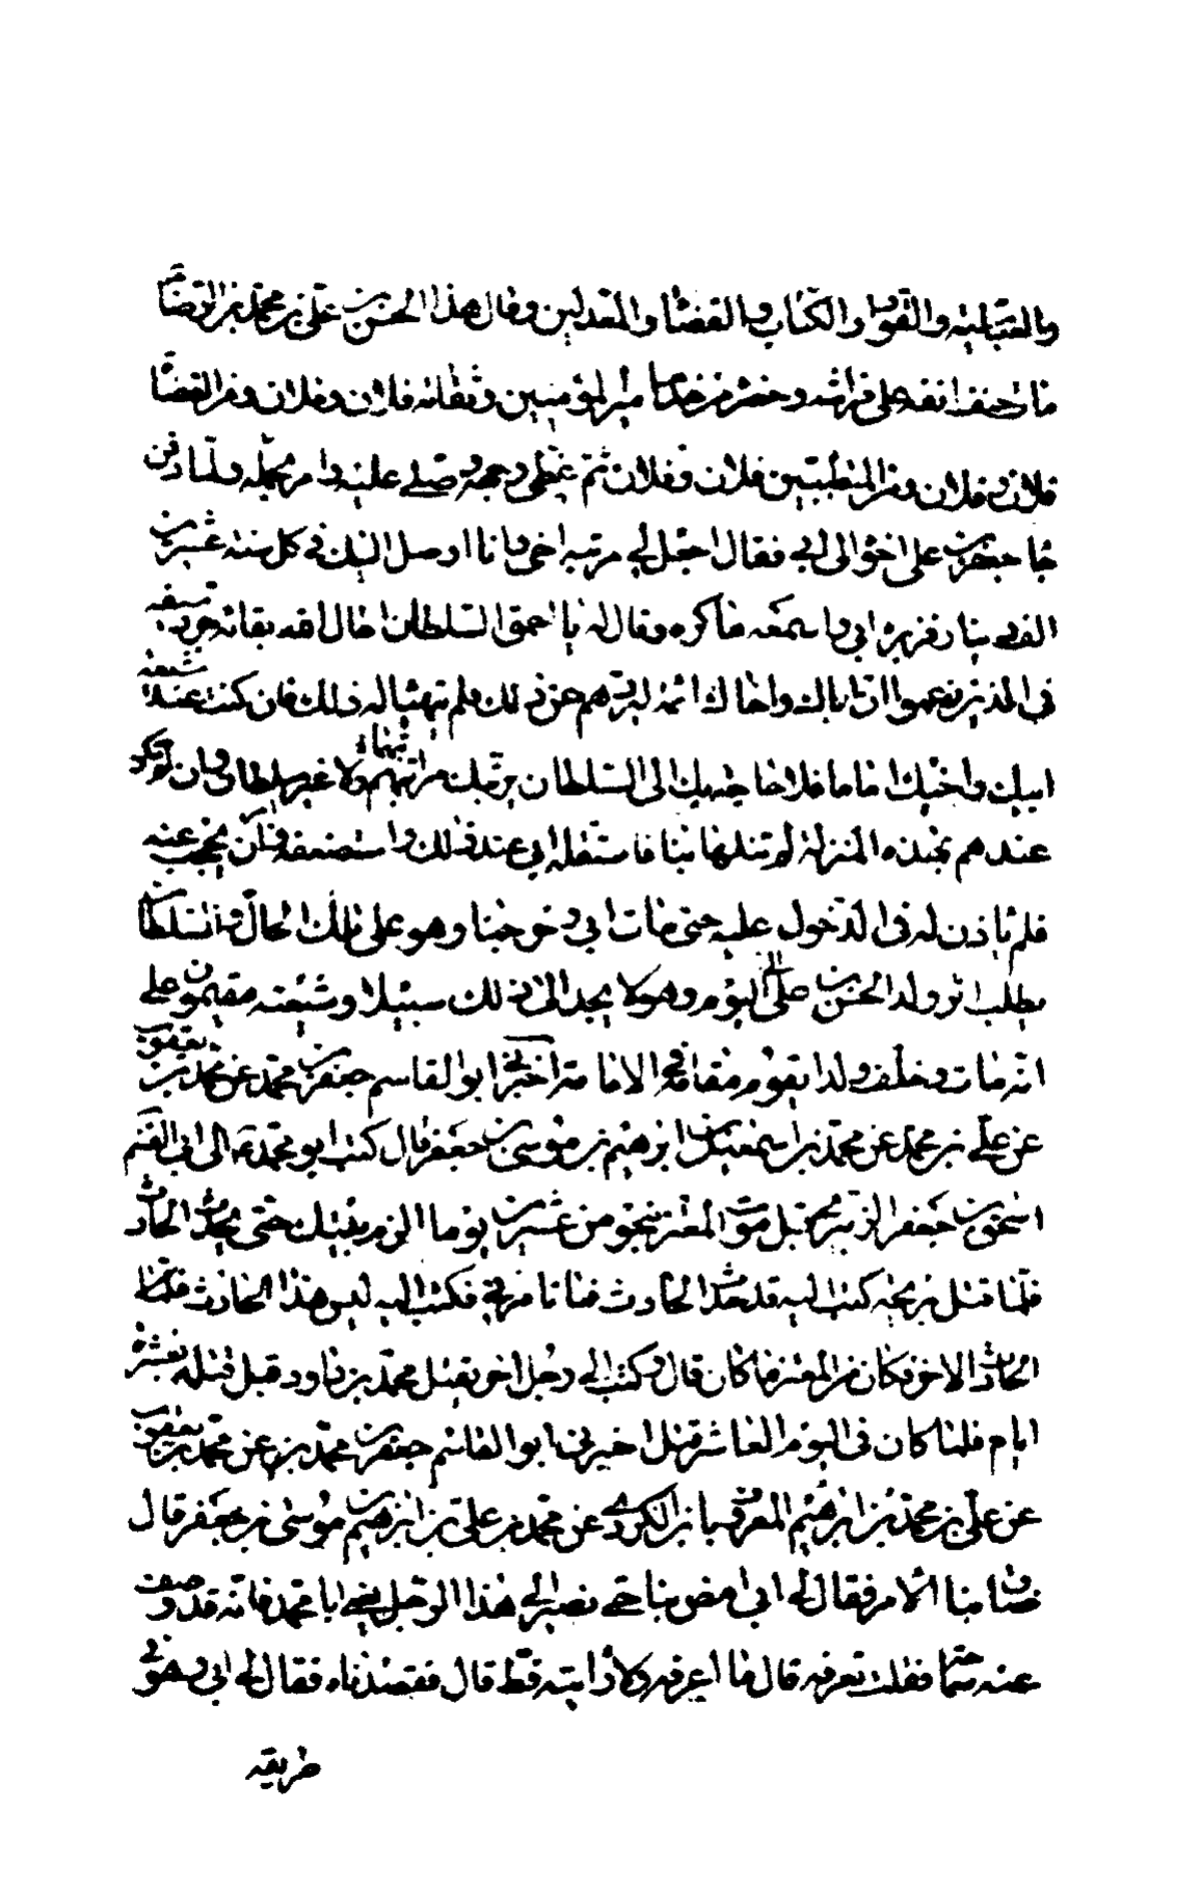 والعباسية والقواد والكتاب والقضاة والمعدلين وقال هذا الحسن بن علي بن محمد بن الرضا
مات حتف انفه على فراشه وحضره من خدم امير المؤمنين وثقاته فلان وفلان ومن القضاة
فلان وفلان ومن المتطببين فلان وفلان ثم غطى وجهه وصلى عليه وامر بحمله ولما دفن
جاء جعفر بن علي اخوه الى ابي فقال اجعل لي مرتبة اخي وانا اوصل اليك في كل سنة عشرين
الف دينار فزبره ابي واسمعه ما كره وقال له يا احمق السلطان اطال الله بقائه جرد سيفه
في الذين زعموا ان اباك واخاك ائمة ليردهم عن ذلك فلم يتهيا له ذلك فان كنت عند شيعة
ابيك واخيك اماما فلا حاجة بك الى السلطان يرتبك مراتبهم ولا غير سلطان وان لم تكن
عندهم بهذه المنزلة لم تنلها بنا فاستقله ابي عند ذلك واستضعفه وامر ان يحجب عنه
فلم ياذن له في الدخول عليه حتى مات ابي وخرجنا وهو على تلك الحال والسلطان
يطلب اثر ولد الحسن بن علي الى اليوم وهو لا يجد الى ذلك سبيلا وشيعته مقيمون على
انه مات وخلف ولدا يقوم مقامه في الامامة اخبرني ابو القاسم جعفر بن محمد عن محمد بن يعقوب
عن علي بن محمد عن محمد بن اسمعيل بن ابرهيم بن موسى بن جعفر قال كتب ابو محمد ع الى ابي القسم
اسحق بن جعفر الزبيري قبل موت المعتز بنحو من عشرين يوما الزم بيتك حتى يحدث الحادث
فلما قتل بريحه كتب اليه قد حدث الحادث فما تامرني فكتب اليه ليس هذا الحادث
الحادث الاخر فكان من المعتز ما كان قال وكتب الى رجل اخر بقتل محمد بن داود قبل قتله بعشرة
ايام فلما كان في اليوم العاشر قتل اخبرني ابو القاسم جعفر بن محمد عن محمد بن يعقوب
عن علي بن محمد بن ابرهيم المعروف بابن الكردي عن محمد بن علي بن ابرهيم بن موسى بن جعفر قال
ضاق بنا الامر فقال لي ابي امض بنا حتى نصير الى هذا الرجل يعني ابا محمد فانه قد وصف
عنه سماحة فقلت تعرفه قال ما اعرفه ولا رايته قط قال فقصدناه فقال لي ابي وهو في
طريقه